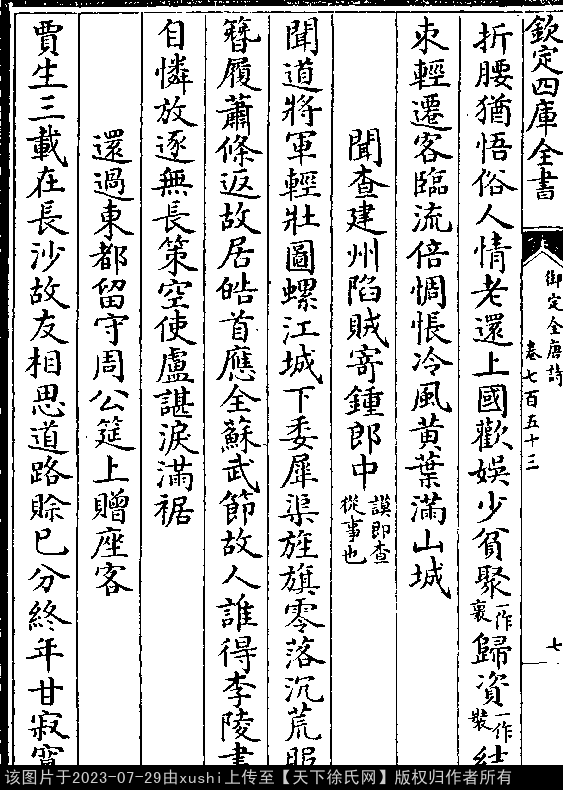 欽定四庫全書
御定全唐詩
卷七百五十三
七
折腰猶悟俗人情老還上國歡娛少貧聚一作裏歸資一作裝結
束輕遷客臨流倍惆悵冷風黃葉滿山城
聞查建州陷賊寄鍾郎中謨即查從事也
聞道將軍輕壯圖螺江城下委犀渠旌旗零落沉荒服
簪履蕭條返故居皓首應全蘇武節故人誰得李陵書
自憐放逐無長策空使盧諶淚滿裾
還過東都留守周公筵上贈座客
賈生三載在長沙故友相思道路賒已分終年甘寂寞
该图片于2023-07-29由xushi上传至【天下徐氏网】版权归作者所有